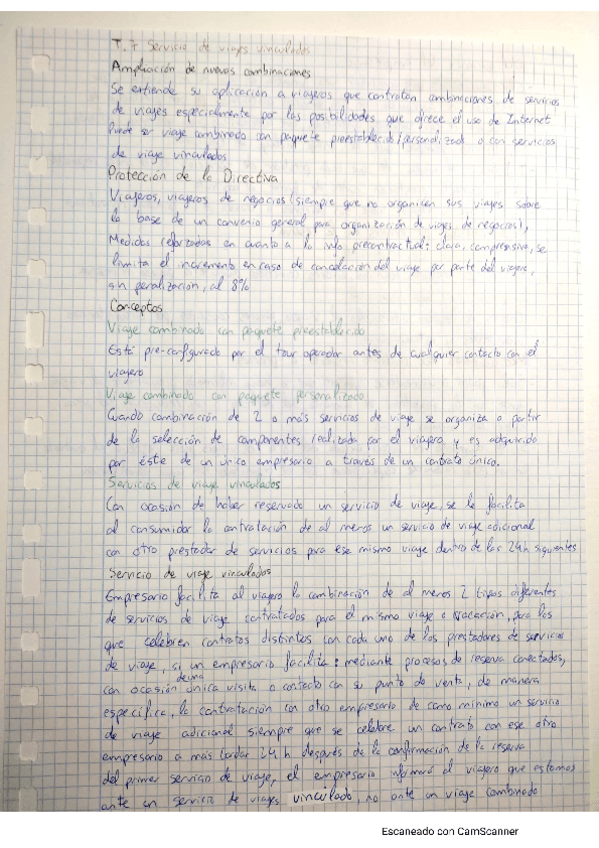 T.7 Servicio de viajes vinculados
Ampliación de nuevas combinaciones
Se entiende su aplicación a viajeros que contratan combinaciones de servicios
de viajes especialmente por las posibilidades que ofrece el uso de Internet
Puede ser viaje combinado con paquete preestablecido/personalizado o con servicios
de viaje vinculados
Protección de la Directiva
Viajeros, viajeros de negocios (siempre que no organicen sus viajes sobre
la base de un convenio general para organización de viajes de negocios),
Medidas reforzadas en cuanto a la info precontractual: clara, comprensiva, se
limita el incremento en caso de cancelación del viaje por parte del viajero,
sin penalización, al 8%
Conceptos
Viaje combinado con paquete preestablecido
Está pre-configurado por el tour operador antes de cualquier contacto con el
viajero
Viaje combinado con paquete personalizado
Cuando combinación de 2 o más servicios de viaje se organiza a partir
de la selección de componentes realizada por el viajero y es adquirido
por éste de un único empresario a través de un contrato único.
Servicios de viaje vinculados
Con ocasión de haber reservado un servicio de viaje, se le facilita
al consumidor la contratación de al menos un servicio de viaje adicional
con otro prestador de servicios para ese mismo viaje dentro de las 24h siguientes
Servicio de viaje vinculados
Empresario facilita al viajero la combinación de al menos 2 tipos diferentes
de servicios de viaje contratados para el mismo viaje o vacación, para los
que celebren contratos distintos con cada uno de los prestadores de servicios
de viaje, si un empresario facilita: mediante procesos de reserva conectados,
con ocasión de una única visita o contacto con su punto de venta, de manera
específica, la contratación con otro empresario de como mínimo un servicio
de viaje adicional siempre que se celebre un contrato con ese otro
empresario a más tardar 24 h después de la confirmación de la reserva
del primer servicio de viaje, el empresario informará al viajero que estamos
ante un servicio de viajes vinculado, no ante un viaje combinado
Escaneado con CamScanner